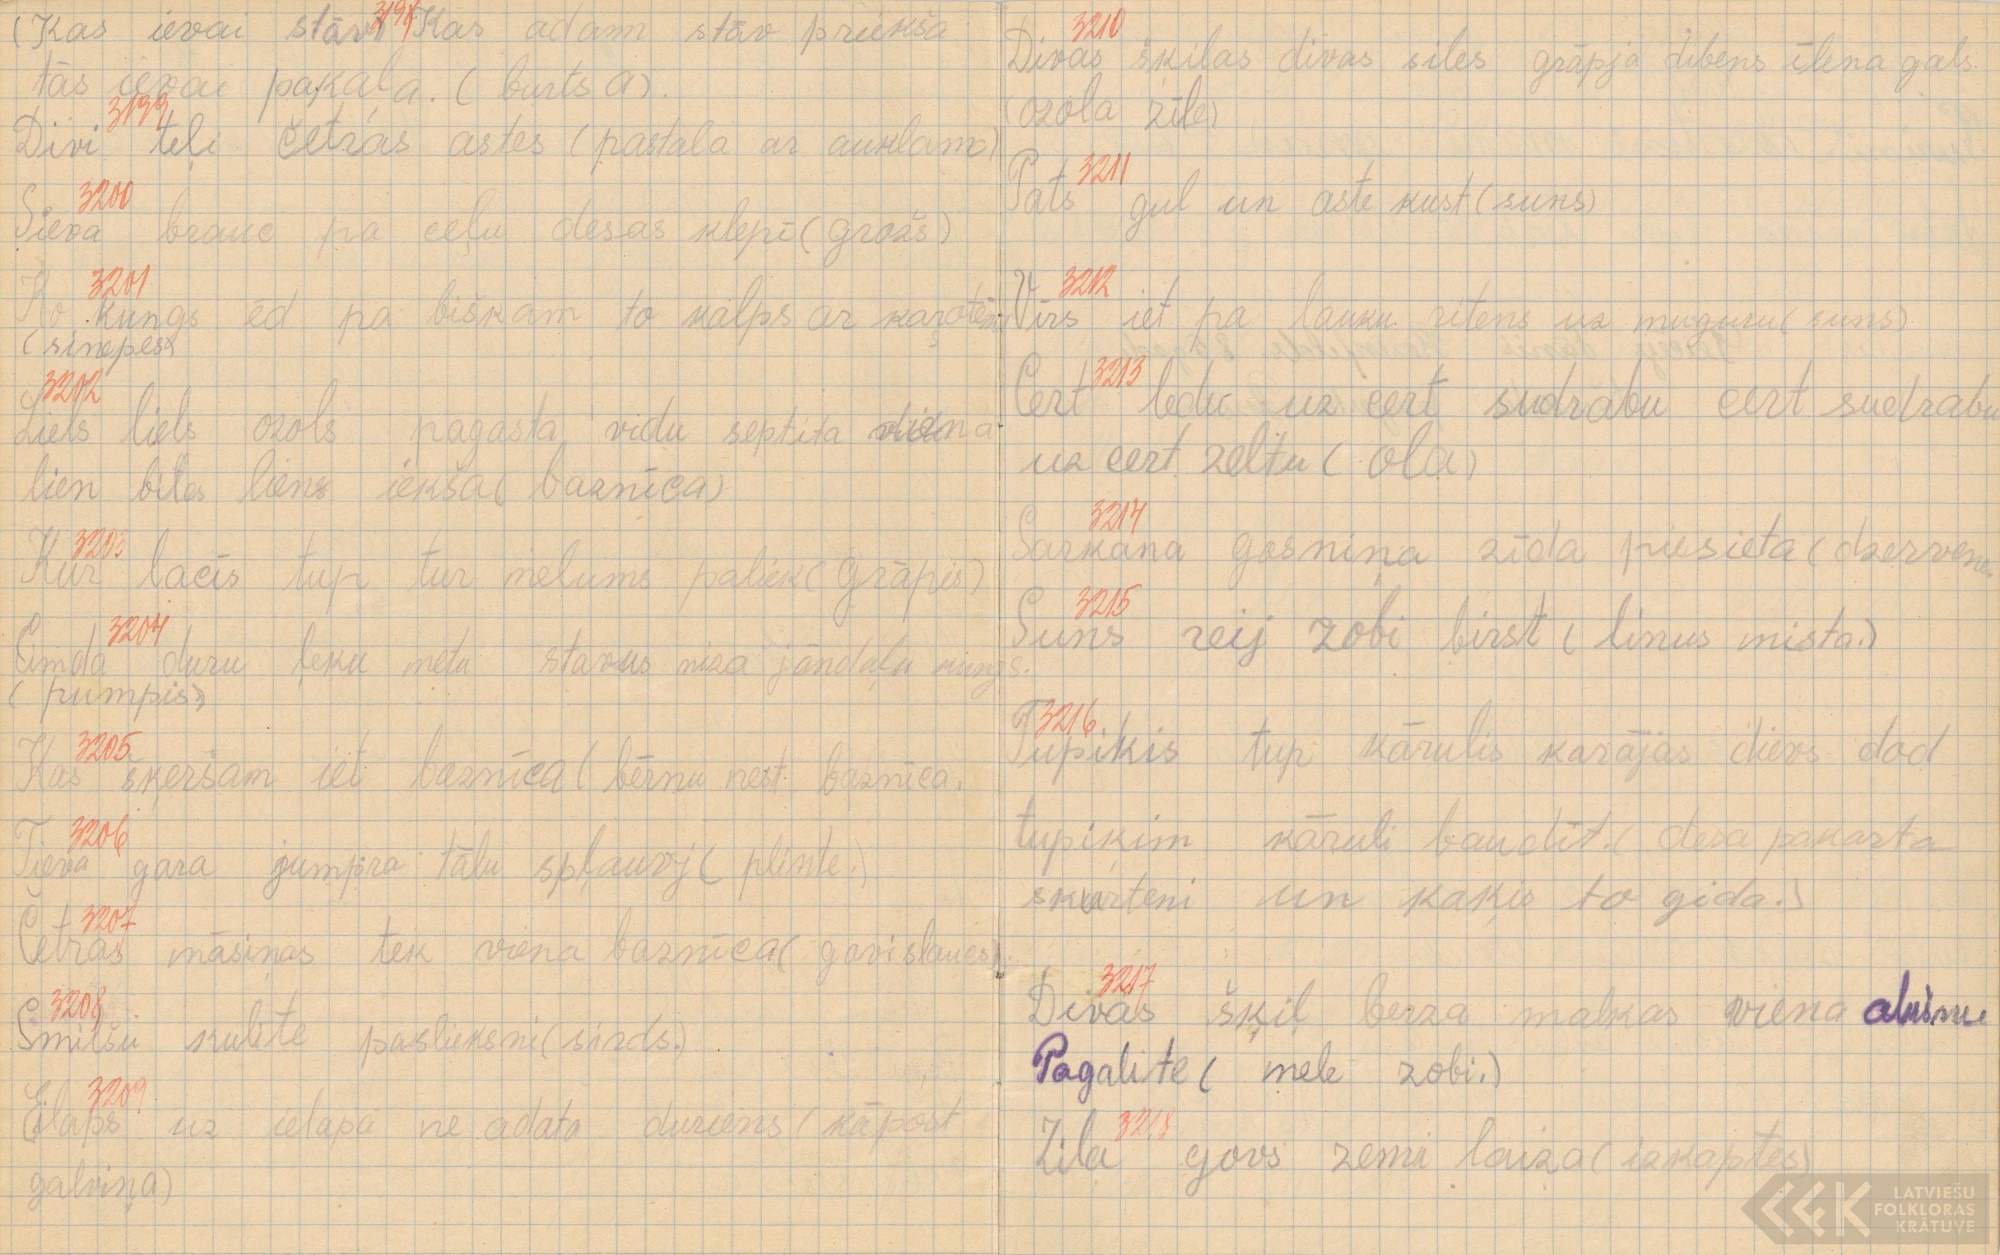 (Kas ievai stāv 3198 Kas adam stāv priekša
tās ievai pakaļa. (burts a).
3199
Divi teļi četras astes (pastala ar auklamo)
3200
Sieva brauc pa ceļu desas klepī (grožs)
3201
Ko kungs ēd pa biškam to kalps ar karotēm
(sinepes)
3202
Liels liels ozols pagasta vidu septita diena
lien bites liens iekša (baznīca)
3203
Kur lacis tup tur melums paliek (grāpis)
3204
Cimda duru leku metu stavus niza jāndaļu kungs.
(pumpis)
3205
Kas šķeršam iet baznīca (bērnu nest baznīca.
3206
Tieva gara jumpra tālu spļauvj (plinte.)
3207
Četras māsiņas tek viena baznīca (govi slauc)
3208
Smilšu kulite paslieksni (sirds.)
3209
Eilaps uz ielapa ne adata duriens (kāpost
galviņa)
3210
Divas šķilas divas siles grāpja dibens īlena gals.
(ozola zīle)
3211
Pats guļ un aste kust (suns)
3212
Vīrs iet pa lauku ritens uz muguru (suns)
3213
Cert ledu uz cert sudrabu cert sudrabu
uz cert zeltu (ola)
3214
Sarkana gosniņa zīda piesieta (dzervene.
3215
Suns reij zobi birst (linus mista.)
3216
Tupiķis tup kārulis karājas dievs dod
tupiķim kāruli baudīt. (desa pakarta
skurteni un kaķis to gida.)
3217
Divas šķiļ berza malkas viena alkšņu
Pagalite (mele zobi.)
3218
Zila govs zemi laiza (izkaptes)
LATVIEŠU
FOLKLORAS
KRĀTUVE